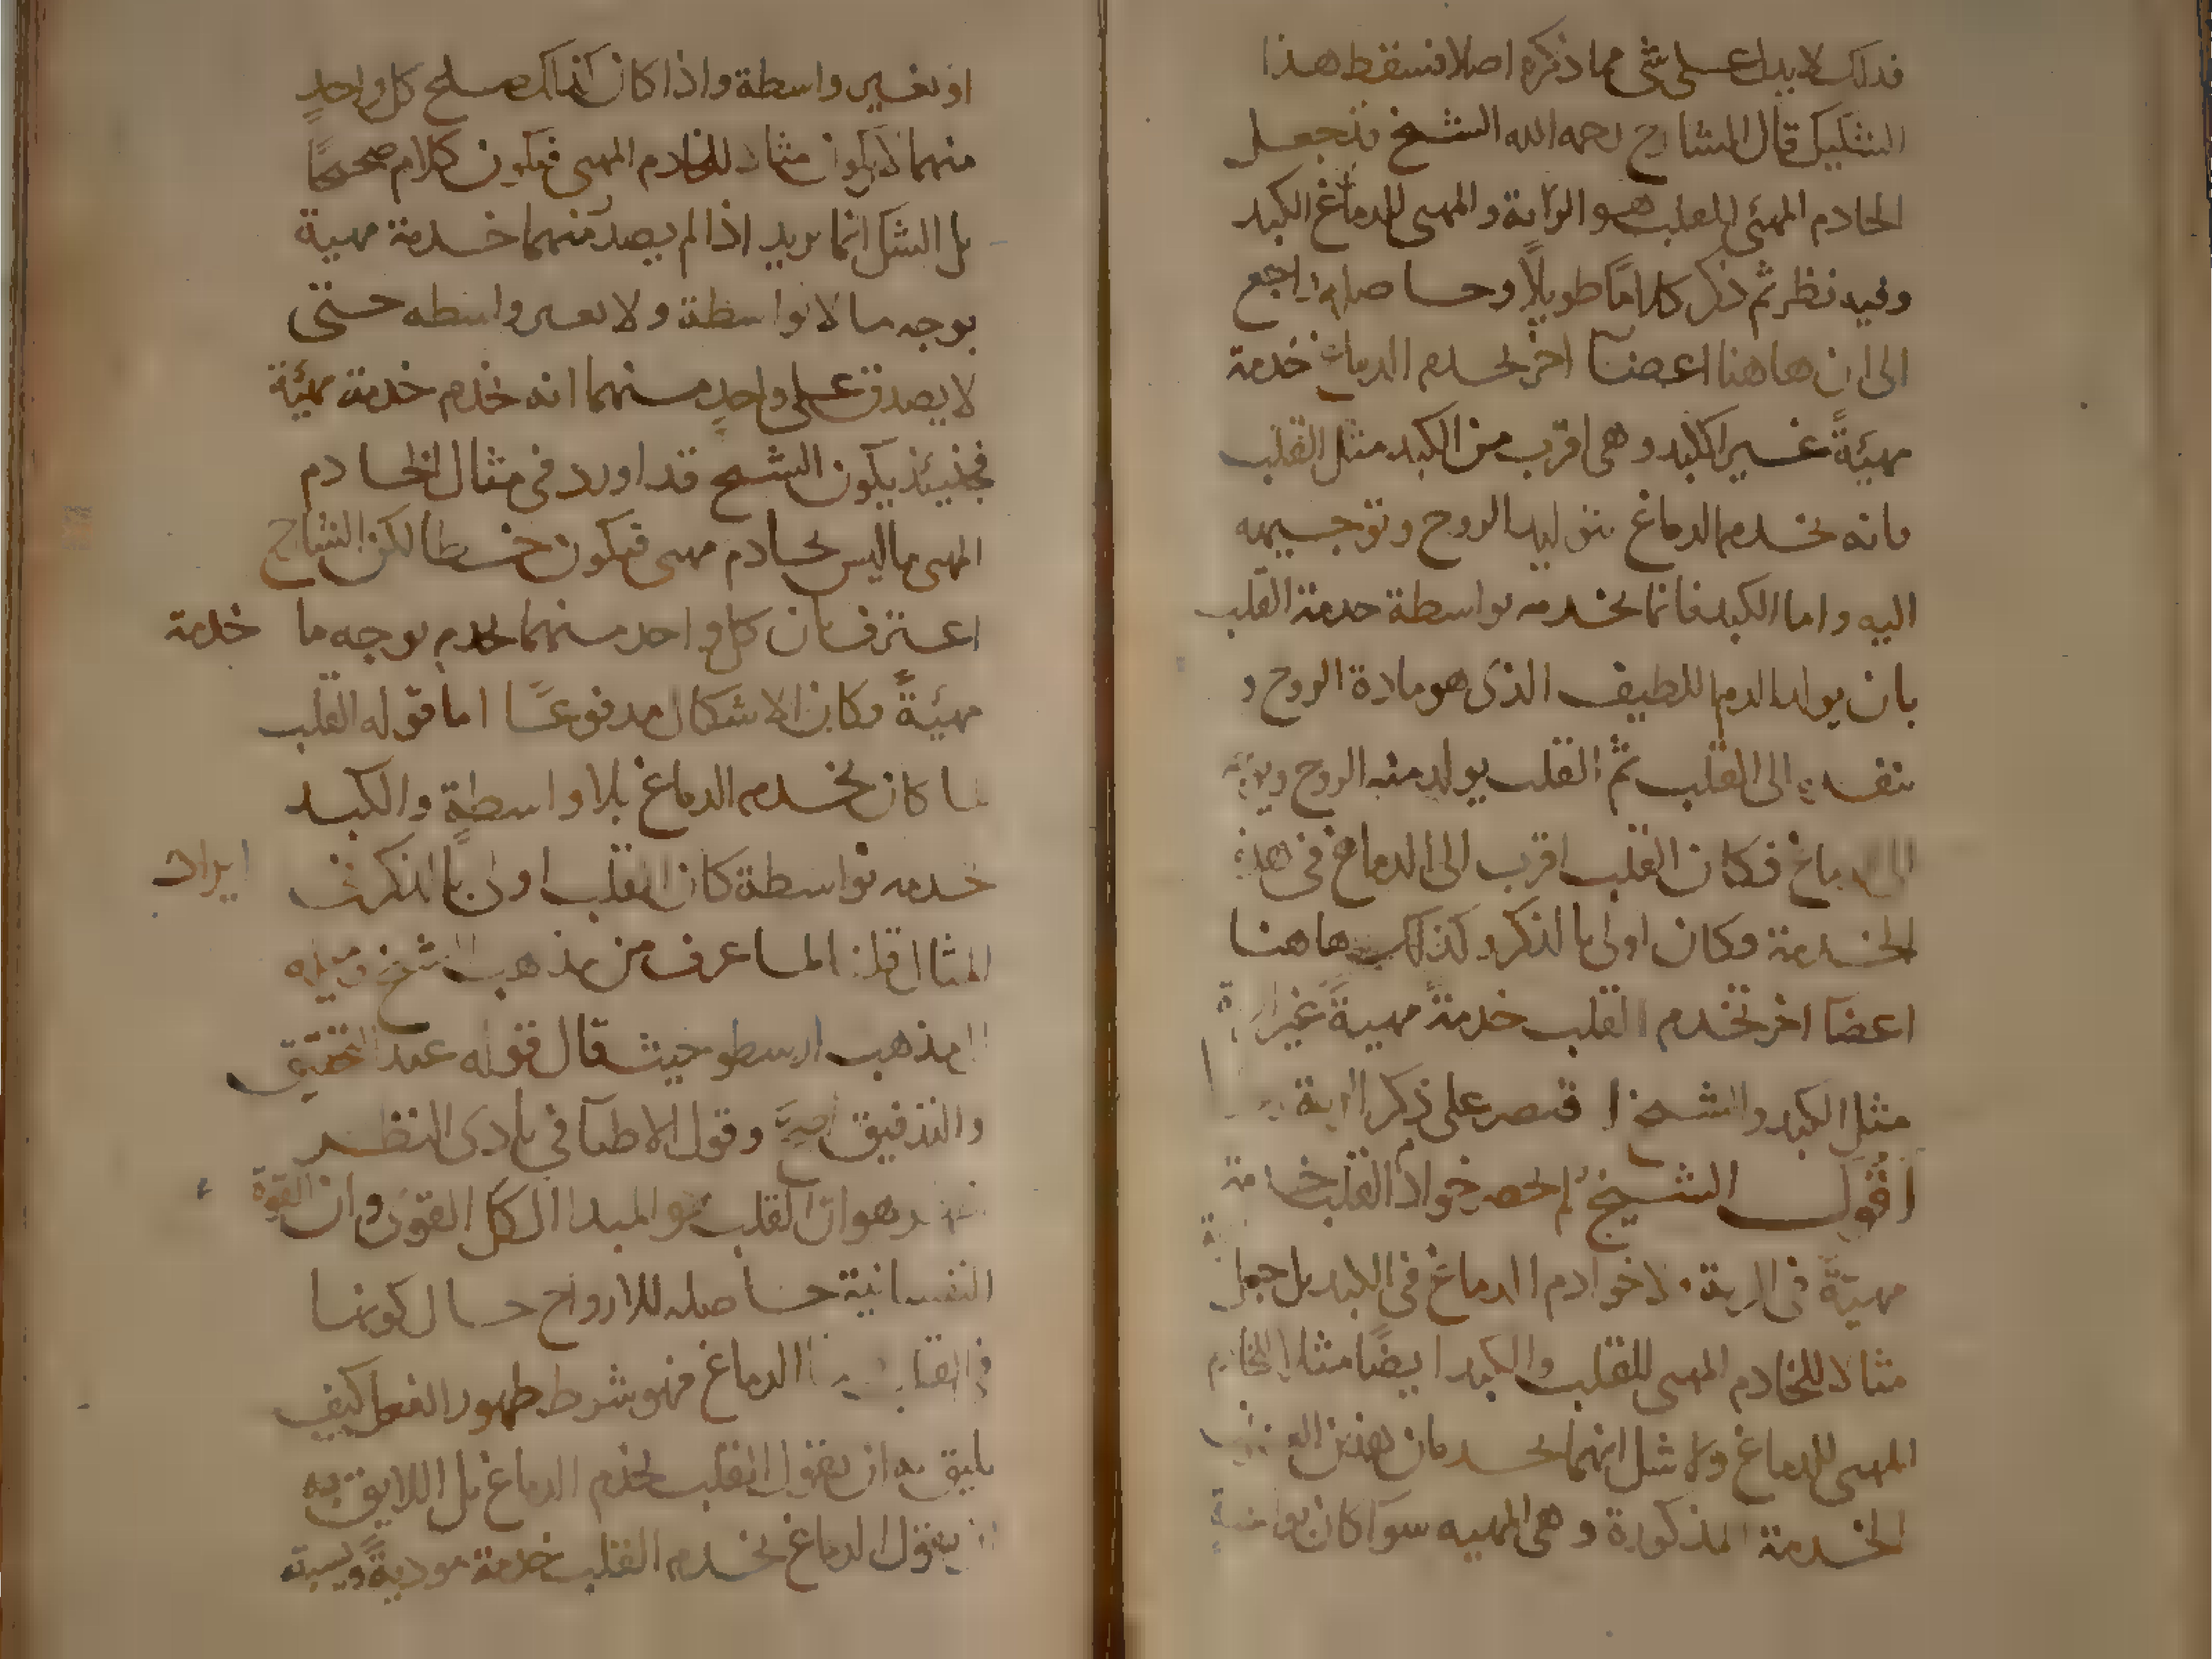 فذلك لا يدل على شى مما ذكره اصلا فسقط هذا
التشكيك قال الشارح رحمه الله الشيخ قد جعل
الخادم المهيئ للقلب هو الرئة والمهيى للدماغ الكبد
وفيه نظر ثم ذكر كلاماً طويلاً وحاصله راجع
الى ان هاهنا اعضآ اخر تخدم الدماغ خدمة
مهيئةً غير الكبد وهى اقرب من الكبد مثل القلب
فانه يخدم الدماغ بتوليد الروح وتوجيهه
اليه واما الكبد فانما يخدمه بواسطة خدمة القلب
بان يولد الدم اللطيف الذى هو مادة الروح و
ينفذه الى القلب ثم القلب يولد منه الروح
الى الدماغ فكان القلب اقرب الى الدماغ فى هذه
الخدمة فكان اولى بالذكر وكذلك هاهنا
اعضا اخر تخدم القلب خدمة مهيةً غير الرية
مثل الكبد والشيخ اقتصر على ذكر الرية
اقول الشيخ لم يحصر خوادم القلب خدمة
مهيئةً فى الرية ولا خوادم الدماغ فى الكبد بل جعل
مثالا للخادم المهيى للقلب والكبد ايضًا مثالا للخادم
المهيى للدماغ ولا شك انهما يخدمان هذين العضوين
الخدمة المذكورة وهى المهييه سوآ كان بواسطة
او بغير واسطة واذا كان كذلك صلح كل واحدٍ
منهما لان يكون مثالا للخادم المهيى فيكون كلامه صحيحًا
بل الشك انما يريد اذا لم يصدر منهما خدمة مهيية
بوجه ما لا بواسطة ولا بغير واسطه حتى
لا يصدق على واحدٍ منهما انه خدم خدمة مهيّئة
فحينئذ يكون الشيخ قد اورد فى مثال الخادم
المهيى ما ليس بخادم مهيى فيكون خطا لكن الشارح
اعترف بان كل واحد منهما يخدم بوجه ما خدمة
مهيئةً فكان الاشكال مدفوعًا اما قوله القلب
لما كان يخدم الدماغ بلا واسطةٍ والكبد
خدمه بواسطة كان القلب اولى بالذكر فى ايراد
المثال قلنا لما عرف من مذهب الشيخ وميله
الى مذهب ارسطو حيث قال قوله عند التحقيق
والتدقيق اصح وقول الاطبآ فى بادى النظر
اظهر وهو ان القلب هو المبدا لكل القوى وان القوة
النفسانية حاصله للارواح حال كونها
فى القلب الدماغ فهو شرط ظهور الفعل كيف
يليق به ان يقول القلب يخدم الدماغ بل اللايق به
ان يقول الدماغ يخدم القلب خدمة موديةً